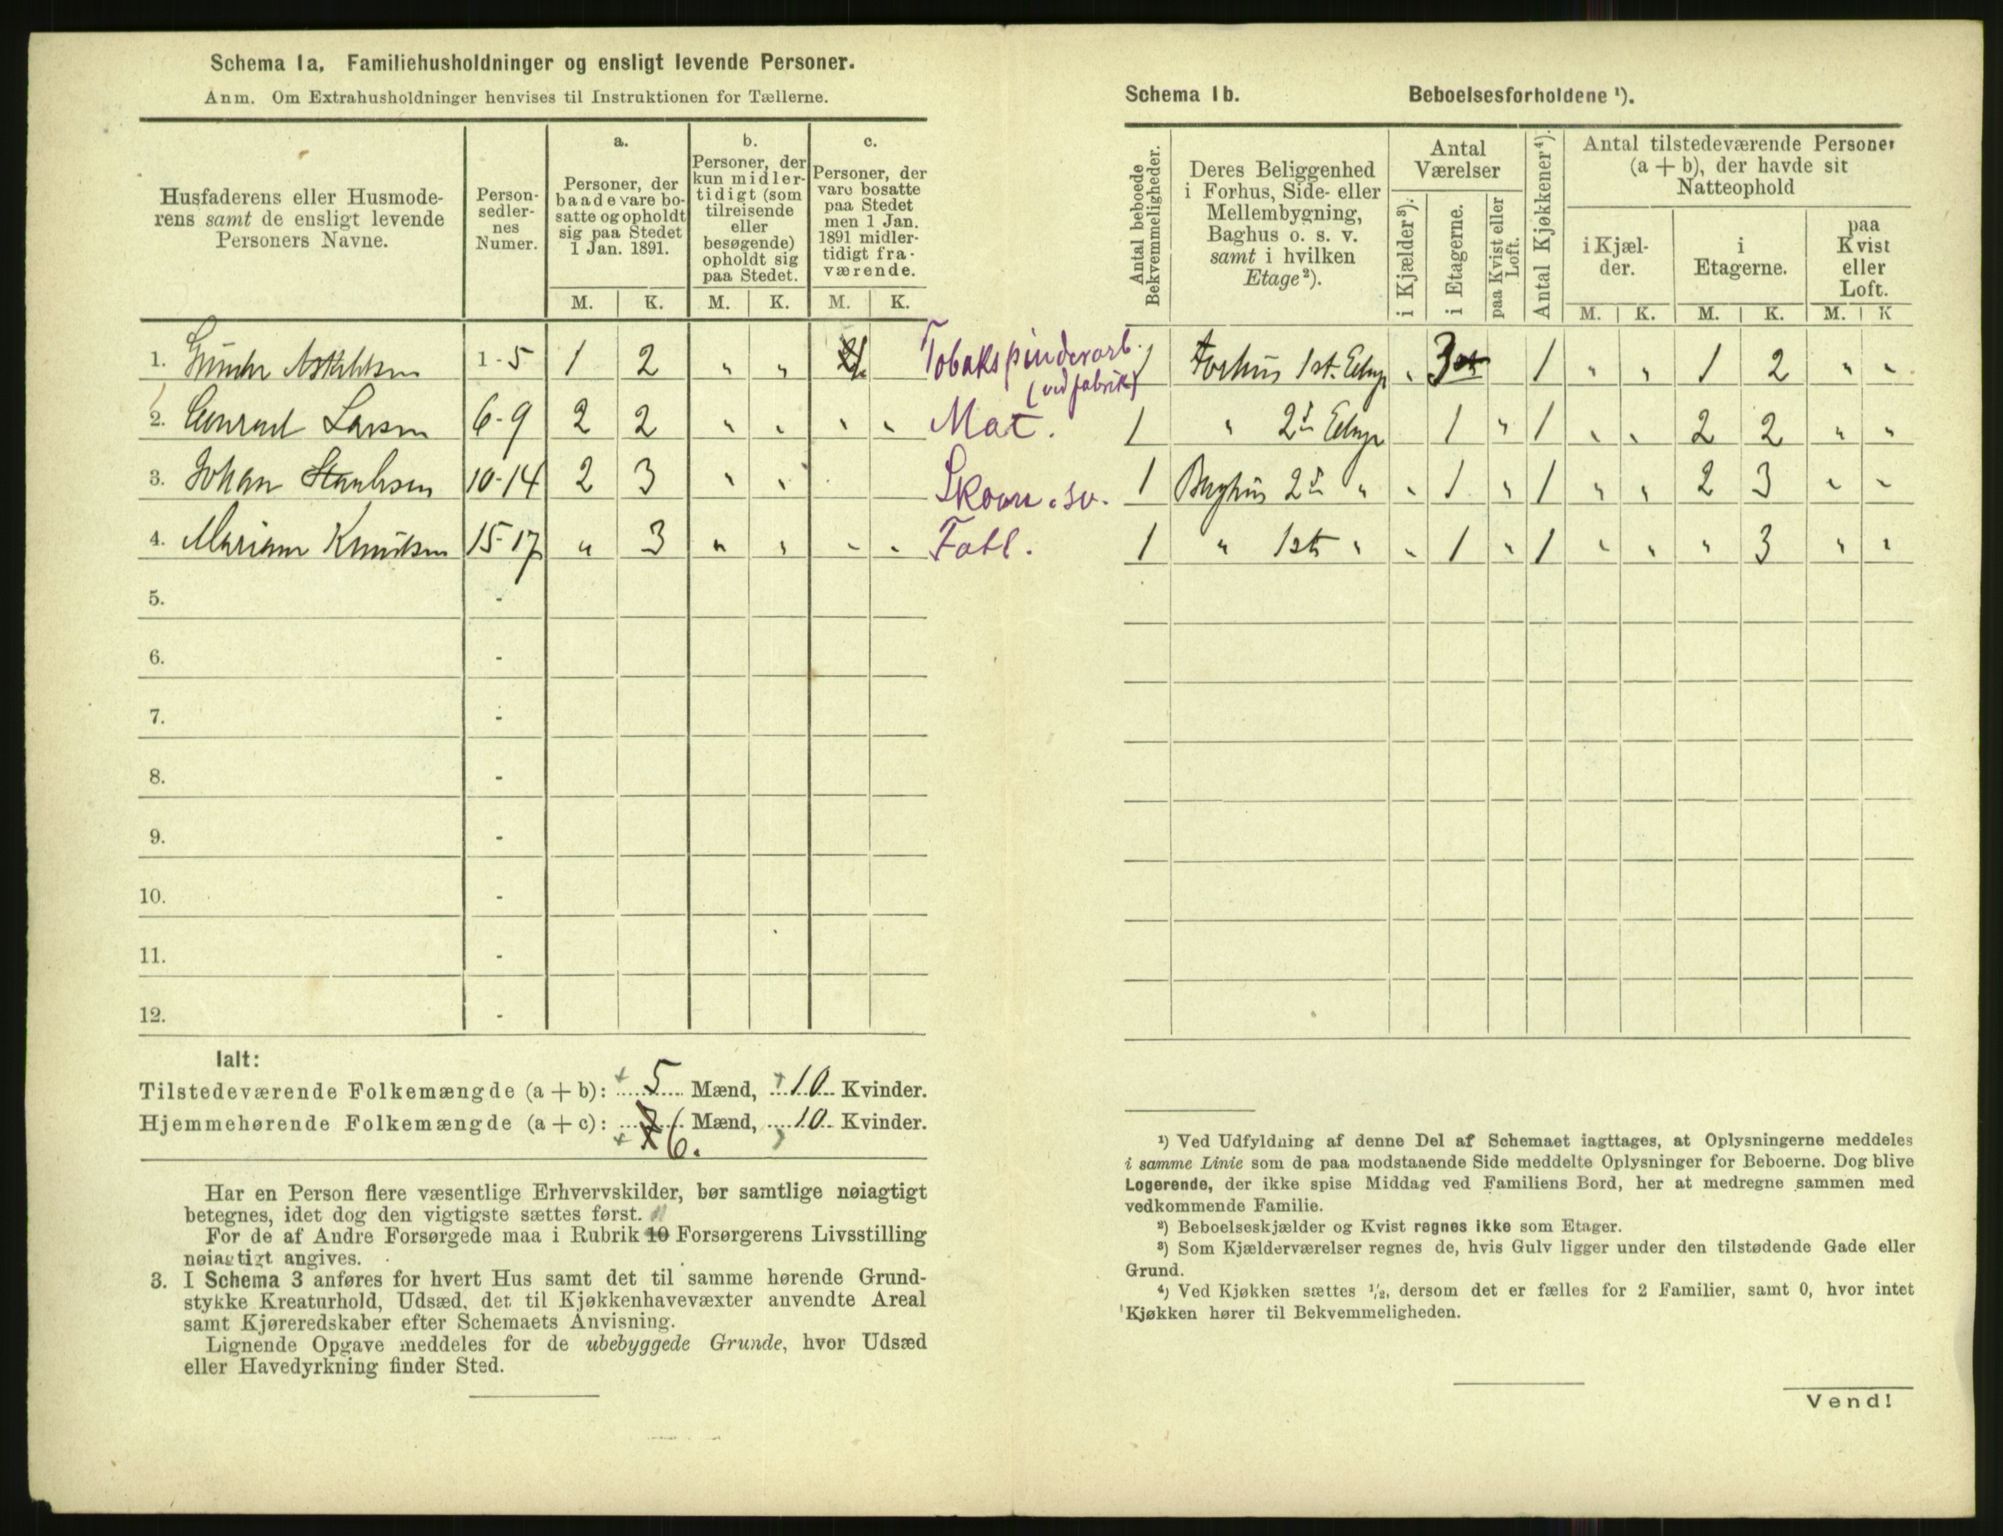 Schema 1a. Familiehusholdninger og ensligt levende Personer.
Anm. Om Extrahusholdninger henvises til Instruktionen for Tællerne.
Husfaderens eller Husmoderens samt de ensligt levende Personers Navne.
Personsedlernes Numer.
a.
Personer, der baade vare bosatte og opholdt sig paa Stedet 1 Jan. 1891.
b.
Personer, der kun midlertidigt (som tilreisende eller besøgende) opholdt sig paa Stedet.
c.
Personer, der vare bosatte paa Stedet men 1 Jan. 1891 midlertidigt fraværende.
M. K. M. K. M. K.
1. 1-5 1 2 " " Tobakspinderarb.
(ved fabrik)
2. Conrad Larsen 6-9 2 2 " " " " Mat.
3. Johan 10-14 2 3 " " Skom. sv.
4. Mariane Knudsen 15-17 " 3 " " " " Fatl.
5. -
6. -
7. -
8. -
9. -
10. -
11. -
12. -
Ialt:
Tilstedeværende Folkemængde (a + b): 5 Mænd, 10 Kvinder.
Hjemmehørende Folkemængde (a + c): 6. Mænd, 10 Kvinder.
Har en Person flere væsentlige Erhvervskilder, bør samtlige nøiagtigt
betegnes, idet dog den vigtigste sættes først.
For de af Andre Forsørgede maa i Rubrik 10 Forsørgerens Livsstilling
nøiagtigt angives.
3. I Schema 3 anføres for hvert Hus samt det til samme hørende Grund-
stykke Kreaturhold, Udsæd, det til Kjøkkenhavevæxter anvendte Areal
samt Kjøreredskaber efter Schemaets Anvisning.
Lignende Opgave meddeles for de ubebyggede Grunde, hvor Udsæd
eller Havedyrkning finder Sted.
Schema 1b. Beboelsesforholdene ¹).
Antal beboede Bekvemmeligheder.
Deres Beliggenhed i Forhus, Side- eller Mellembygning, Baghus o. s. v. samt i hvilken Etage²).
Antal Værelser
i Kjælder³).
i Etagerne.
paa Kvist eller Loft.
Antal Kjøkkener⁴).
Antal tilstedeværende Personer (a + b), der havde sit Natteophold
i Kjælder.
i Etagerne.
paa Kvist eller Loft.
M. K. M. K. M. K
1 Forhus 1st. Etage " 3 1 " " 1 2 " "
1 " 2d Etage 1 " 1 " " 2 2 " "
1 Baghus 2d " " 1 " 1 " " 2 3 " "
1 " 1ste " " 1 " 1 " " " 3 " "
¹) Ved Udfyldning af denne Del af Schemaet iagttages, at Oplysningerne meddeles
i samme Linie som de paa modstaaende Side meddelte Oplysninger for Beboerne. Dog blive
Logerende, der ikke spise Middag ved Familiens Bord, her at medregne sammen med
vedkommende Familie.
²) Beboelseskjælder og Kvist regnes ikke som Etager.
³) Som Kjælderværelser regnes de, hvis Gulv ligger under den tilstødende Gade eller
Grund.
⁴) Ved Kjøkken sættes ¹/₂, dersom det er fælles for 2 Familier, samt 0, hvor intet
Kjøkken hører til Bekvemmeligheden.
Vend!